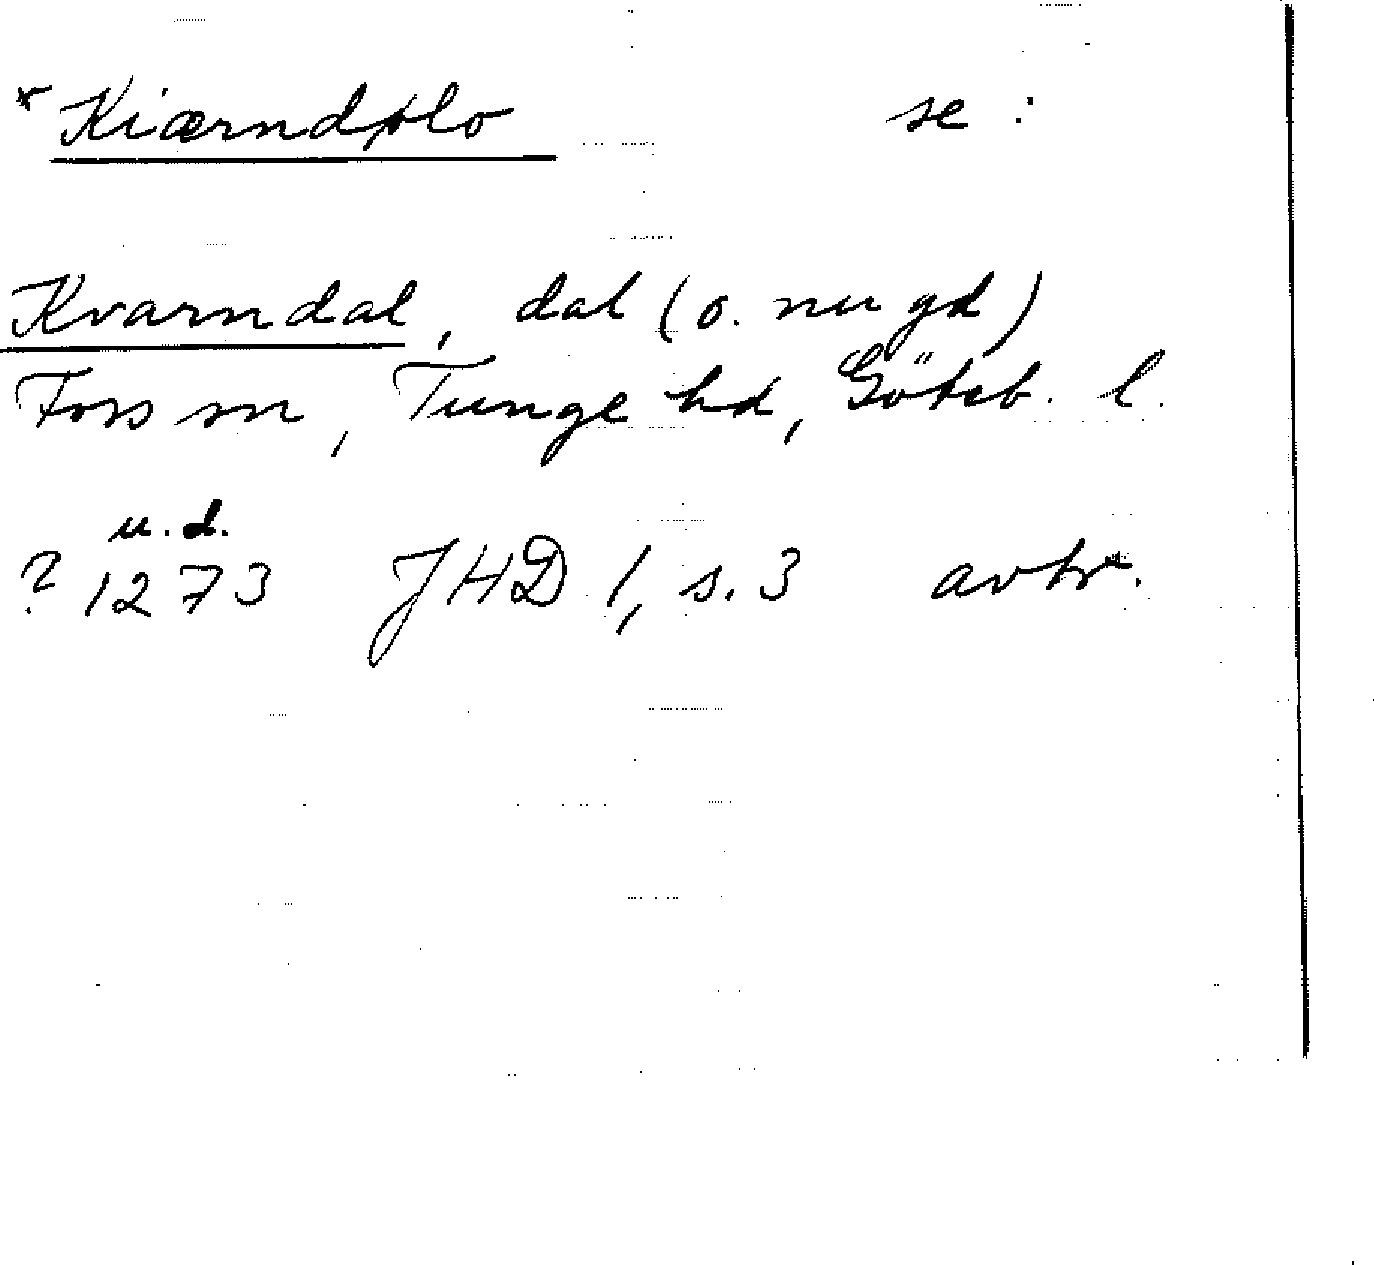 * Kiærndølo se :
Kvarndal, dal (o. nu gd)
Foss sn, Tunge hd, Göteb. l.
u.d.
? 1273 JHD 1, s. 3 avhr.